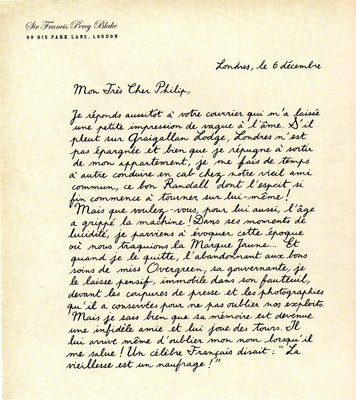 Sir Francis Percy Blake
99 BIS PARK LANE, LONDON
Londres, le 6 décembre
Mon Très Cher Philip,
Je réponds aussitôt à votre courrier qui m'a laissé
une petite impression de vague à l'âme. S'il
pleut sur Graigallan Lodge, Londres n'est
pas épargnée et bien que je répugne à sortir
de mon appartement, je me fais de temps
à autre conduire en cab chez notre vieil ami
commun, ce bon Randall dont l'esprit si
fin commence à tourner sur lui-même!
Mais que voulez-vous, pour lui aussi, l'âge
a grippé la machine! Dans ses moments de
lucidité, je parviens à évoquer cette époque
où nous traquions la Marque Jaune... Et
quand je le quitte, l'abandonnant aux bons
soins de miss Overgreen, sa gouvernante, je
le laisse pensif, immobile dans son fauteuil,
devant les coupures de presse et les photographies
qu'il a conservées pour ne pas oublier nos exploits.
Mais je sais bien que sa mémoire est devenue
une infidèle amie et lui joue des tours. Il
lui arrive même d'oublier mon nom lorsqu'il
me salue! Un célèbre Français disait: "La
vieillesse est un naufrage!"